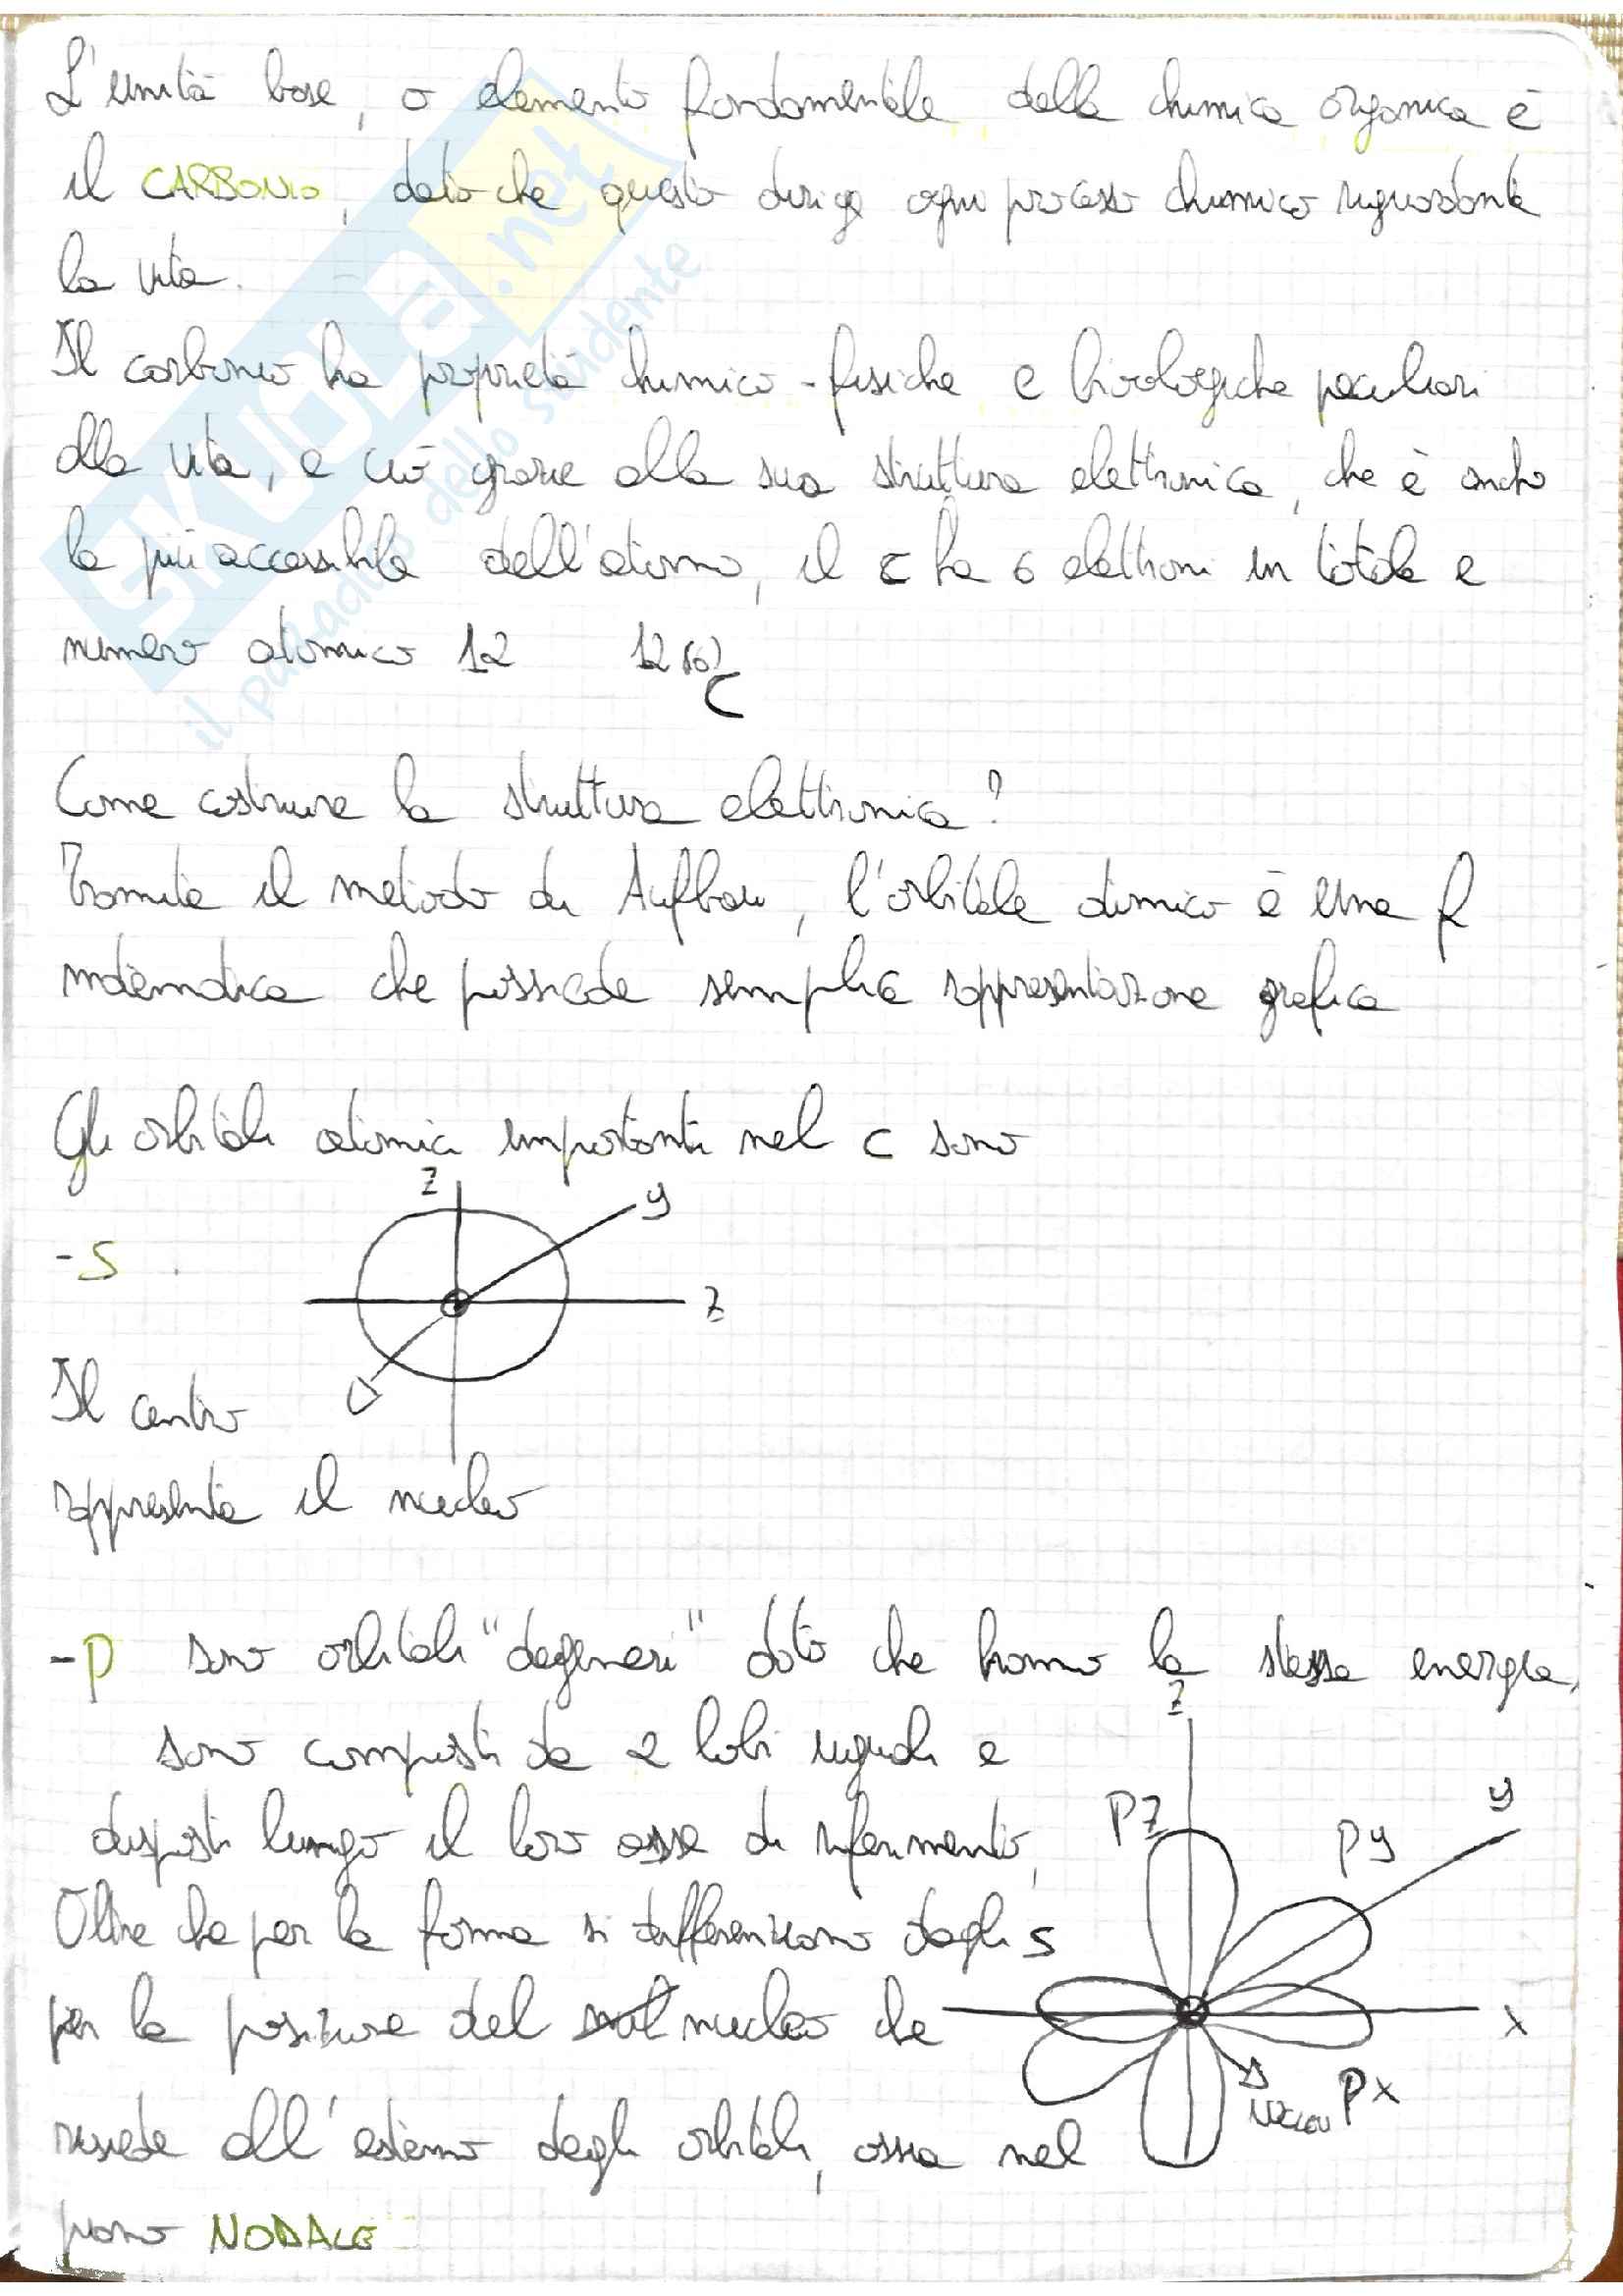 L'unità base, o elemento fondamentale della chimica organica è
il CARBONIO, dato che questo dirige ogni processo chimico riguardante
la vita.
Il carbonio ha proprietà chimico-fisiche e biologiche peculiari
alla vita, e ciò grazie alla sua struttura elettronica, che è anche
la più accessibile dell'atomo, il C ha 6 elettroni in totale e
numero atomico 12 12 C
Come costruire la struttura elettronica?
Tramite il metodo di Aufbau, l'orbitale atomico è una f
matematica che possiede semplice rappresentazione grafica
Gli orbitali atomici importanti nel C sono
z
y
-S
z
Il centro
rappresenta il nucleo
-P sono orbitali "degeneri" dato che hanno la stessa energia,
z
sono composti da 2 lobi uguali e
y
PZ
Py
disposti lungo il loro asse di riferimento,
Oltre che per la forma si differenziano dagli s
per la posizione del nucleo che
x
Px
NUCLEO
risiede all'esterno degli orbitali, ossia nel
piano NODALE
SKUOLA.net
il paradiso dello studente